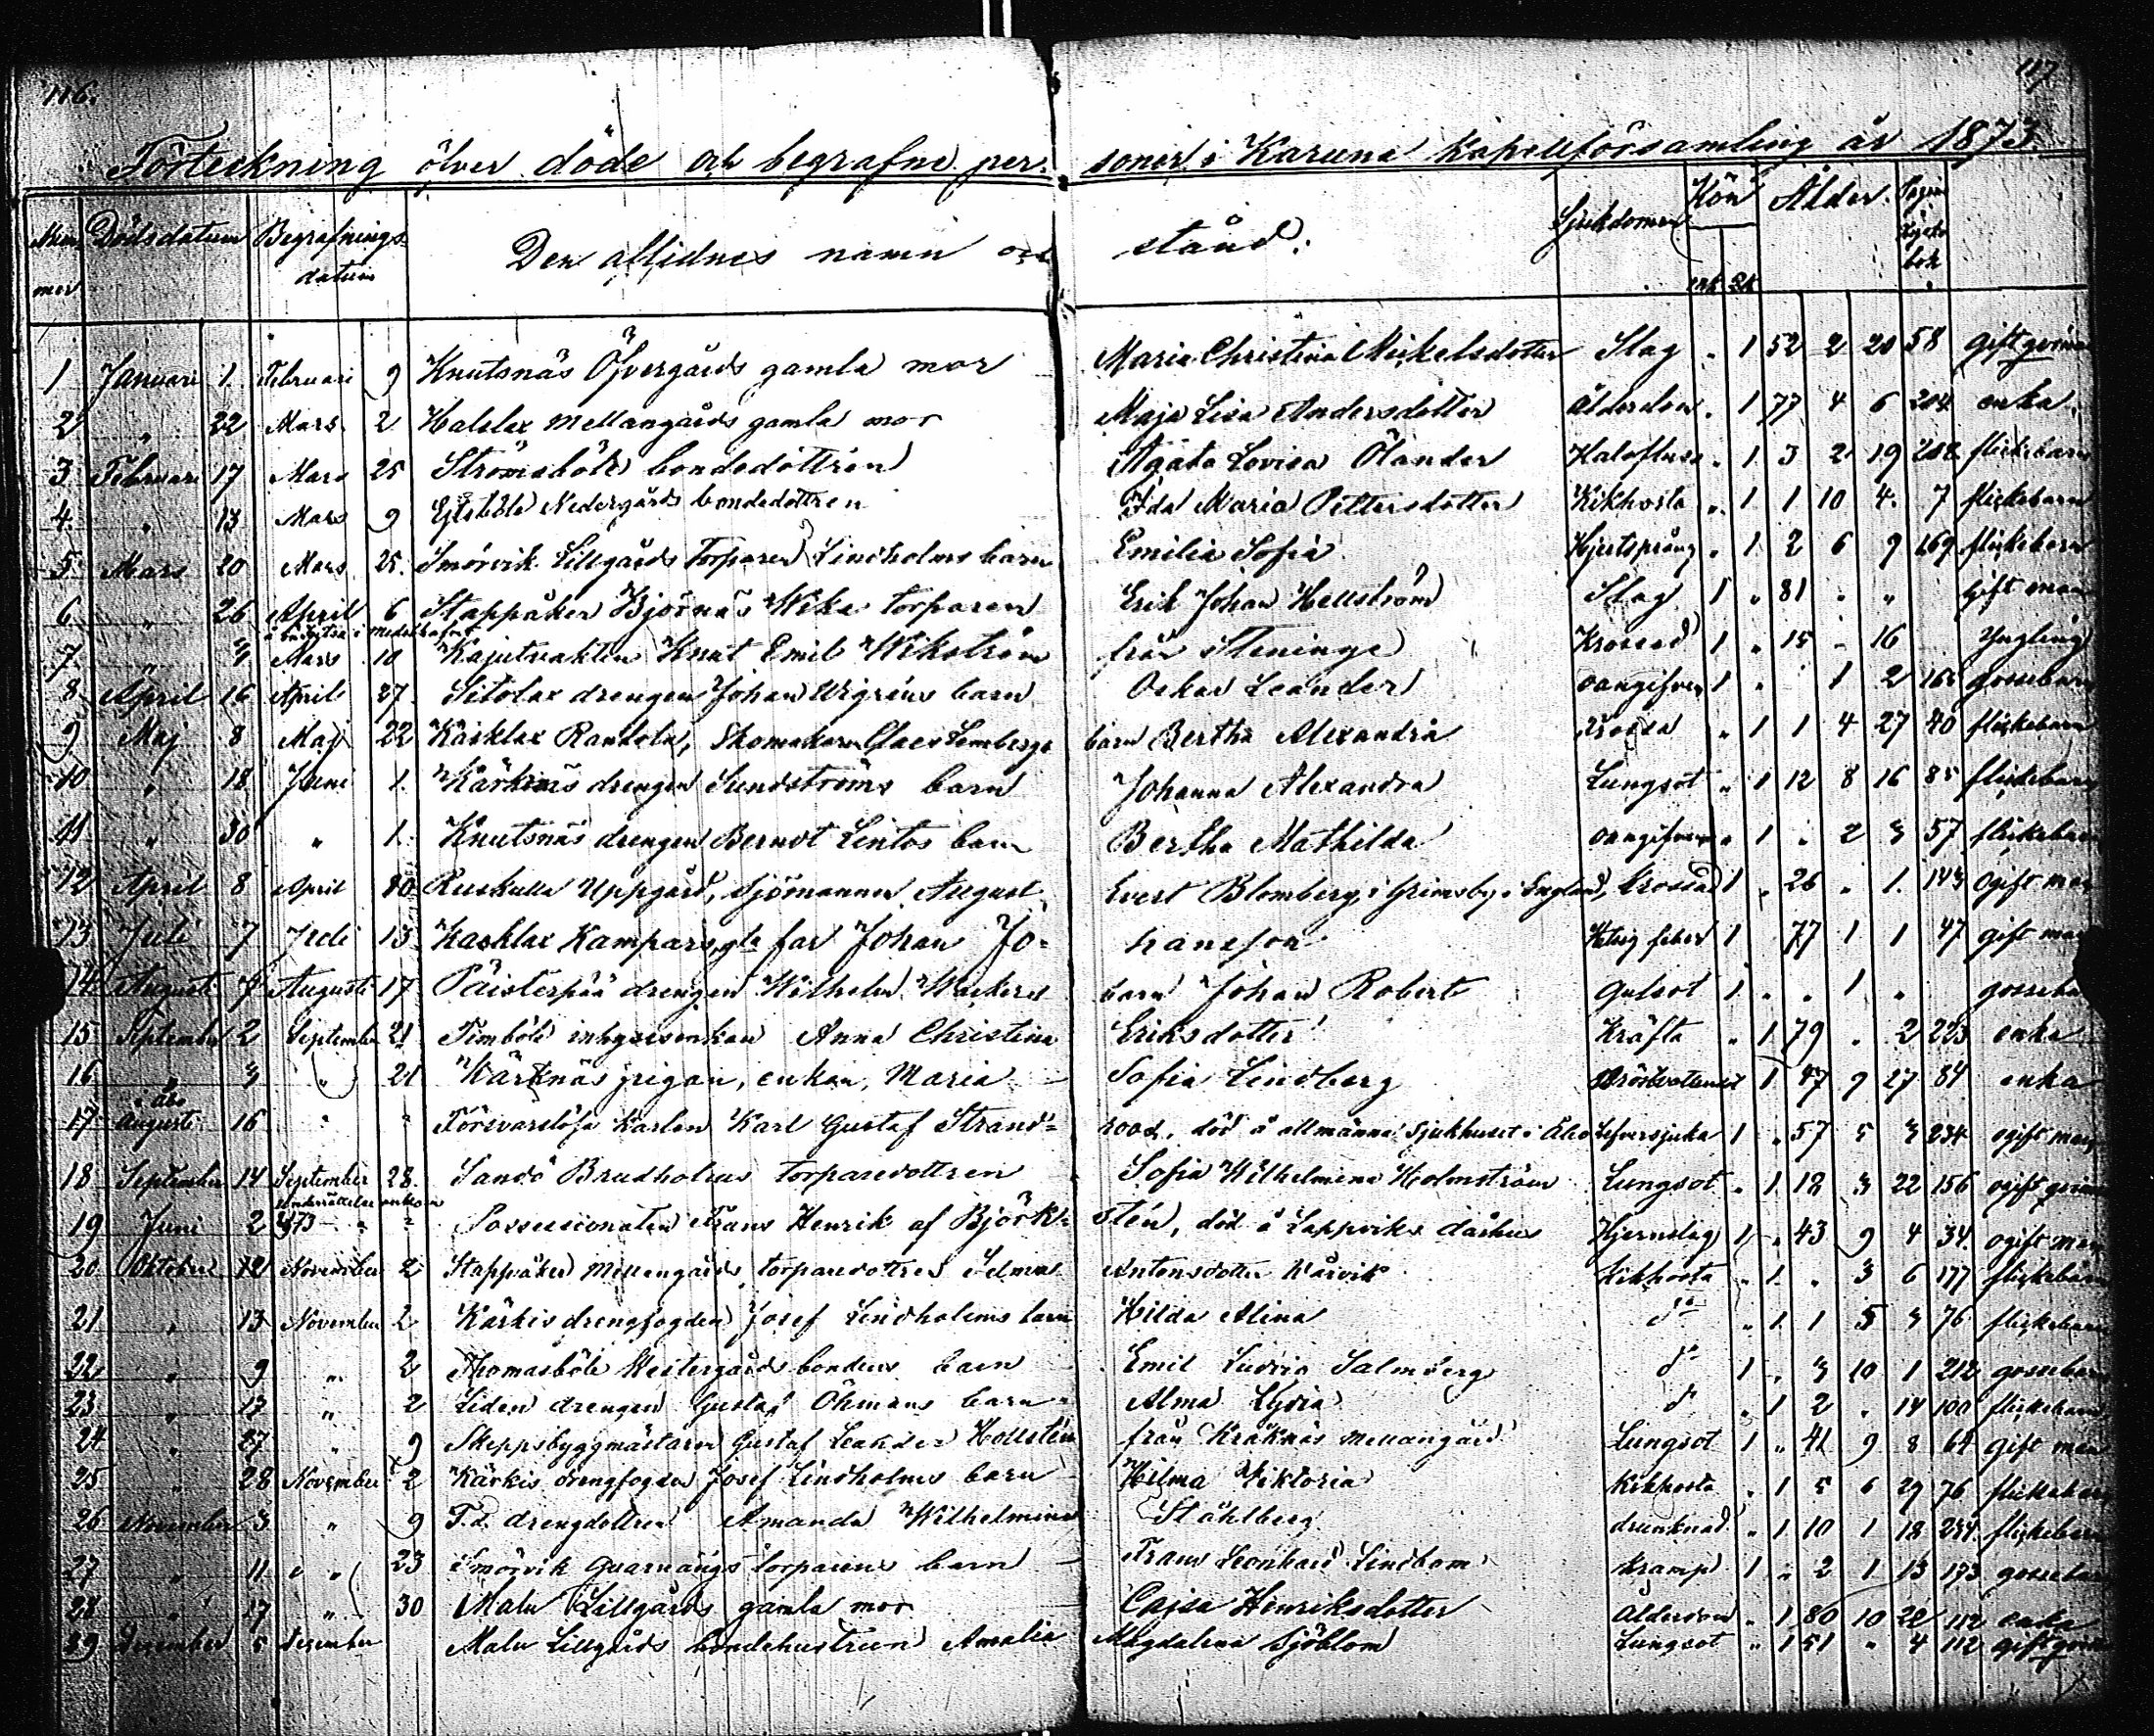 116.
117
Förteckning öfver döde och begrafne per- soner i Karuna Kapellförsamling år 1873.
Num mer Dödsdatum Begrafnings datum Den aflidnes namn och stånd. Sjukdomen Kön mk qk Ålder. Pagina Kyrko bok
1 Januari 1. Februari 9 Knutsnäs Öfvergårds gamla mor Maria Christina Mickelsdotter Slag " 1 52 2 20 58 gift qvinna
2 " 22 Mars 2 Halslax Mellangårds gamla mor Maja Lisa Andersdotter Ålderdom " 1 77 4 6 204 enka
3 Februari 17 Mars 25 Strömsböle bondedottren Agata Lovisa Ölander Halsfluss " 1 3 2 19 202 flickebarn
4. " 13 Mars 9 Nedergårds bondedottren Ida Maria Pettersdotter Kikhosta " 1 1 10 4. 7 flickebarn
5 Mars 20 Mars 25. Smörvik Lillgårds Torparen Lindholms barn Emilia Sofia Hjertsprång " 1 2 6 9 169 flickebarn
6 " 26 April 6 Stappåker Björnäs Wika torparen Erik Johan Hellström Slag 1 " 81 " " gift man
7. " 3 Mars 10 Kajutvakten Knut Emil Wikström från Steninge Krossad 1 " 15 - 16 Yngling
8 April 16 April 27. Sitolax drengen Johan Wigréns barn Oskar Leander oangifven 1 " 1 2 165 gossebarn
9 Maj 8 Maj 22 Käsklax Rankela, Skomakaren Claes Lembergs barn Bertha Alexandra " 1 1 4 27 40 flickebarn
10 " 18 Juni 1. Kärknäs drengen Sundströms barn Johanna Alexandra Lungsot " 1 12 8 16 85 flickebarn
11 " 30 " 1. Knutsnäs drengen Berndt Lintos barn Bertha Mathilda oangifven " 1 . 2 3 57 flickebarn
12 April 8 April 30 Ruskulla Uppgård, Sjömannen August Evert Blomberg, i Grimsby i England, Krossad 1 " 26 " 1. 143 Ogift man
13 Juli 7 Juli 13 Käsklax Kampars gla far Johan Jo- hansson Hetsig feber 1 77 1 1 47 gift man
14 Augusti 7 Augusti 17 Päisterpää drengen Wilhelm barn Johan Robert Gulsot 1 " . 1 " gossebarn
15 September 2 September 21 Timböle inhysesenkan Anna Christina Eriksdotter Kräfta " 1 79 " 2 223 enka
16 " 3 " 21 Kärknäs pigan, enkan, Maria Sofia Lindberg Bröstvattensot 1 47 9 27 84 enka
17 i Åbo Augusti 16 " " Försvarslösa Karlen Karl Gustaf Strand- roos. död å allmänna Sjukhuset i Åbo Lefversjuka 1 " 57 5 3 234 ogift man
18 September 14 September 28. Sandö Brudholms torparedottren Sofia Wilhelmina Holmström Lungsot " 1 12 3 22 156 ogift qvinna
19 Juni 2 1873 " " Possessionaten Frans Henrik af Björk- stén, död å Lappviks dårhus Hjernslag 1 " 43 9 4 34. ogift man
20 Oktober 12 November 2 Stappåker Mellangårds torparedottren Selma Antonsdotter Kårvik Kikhosta " 1 " 3 6 177 flickebarn
21 " 13 November 2 Kärkis drengfogden Josef Lindholms barn Hilda Alina do " 1 1 5 3 76 flickebarn
22 " 9 " 2 Thomasböle Westergårds bondens barn Emil Ludvig Salmberg do 1 " 3 10 1 212 gossebarn
23 " 13 " 2 Liden drengen Gustaf Öhmans barn Alma Lydia do " 1 2 " 14 100 flickebarn
24 " 27 " 9 Skeppsbyggmästaren Gustaf Leander Hollstén från Kräknäs Mellangård Lungsot 1 " 41 9 8 64 gift man
25 " 28 November 2 Kärkis drengfogden Josef Lindholms barn Hilma Viktoria Kikhosta " 1 5 6 29 76 flickebarn
26 November 3 " 9 F.d. drengdottren Amanda Wilhelmina Ståhlberg drunknad " 1 10 1 18 234. flickebarn
27 " 11 " 23 Smörvik Quarnängs torparens barn Frans Leonhard Lindbom Kramp 1 " 2 1 13 173 gossebarn
28 " 17 " 30 Malu Lillgårds gamla mor Cajsa Henriksdotter Ålderdom " 1 80 10 22 112 enka
29 December 5 December Malu Lillgårds bondehustrun Amalia Magdalena Sjöblom Lungsot " 1 51 " 4 112 gift qvinna